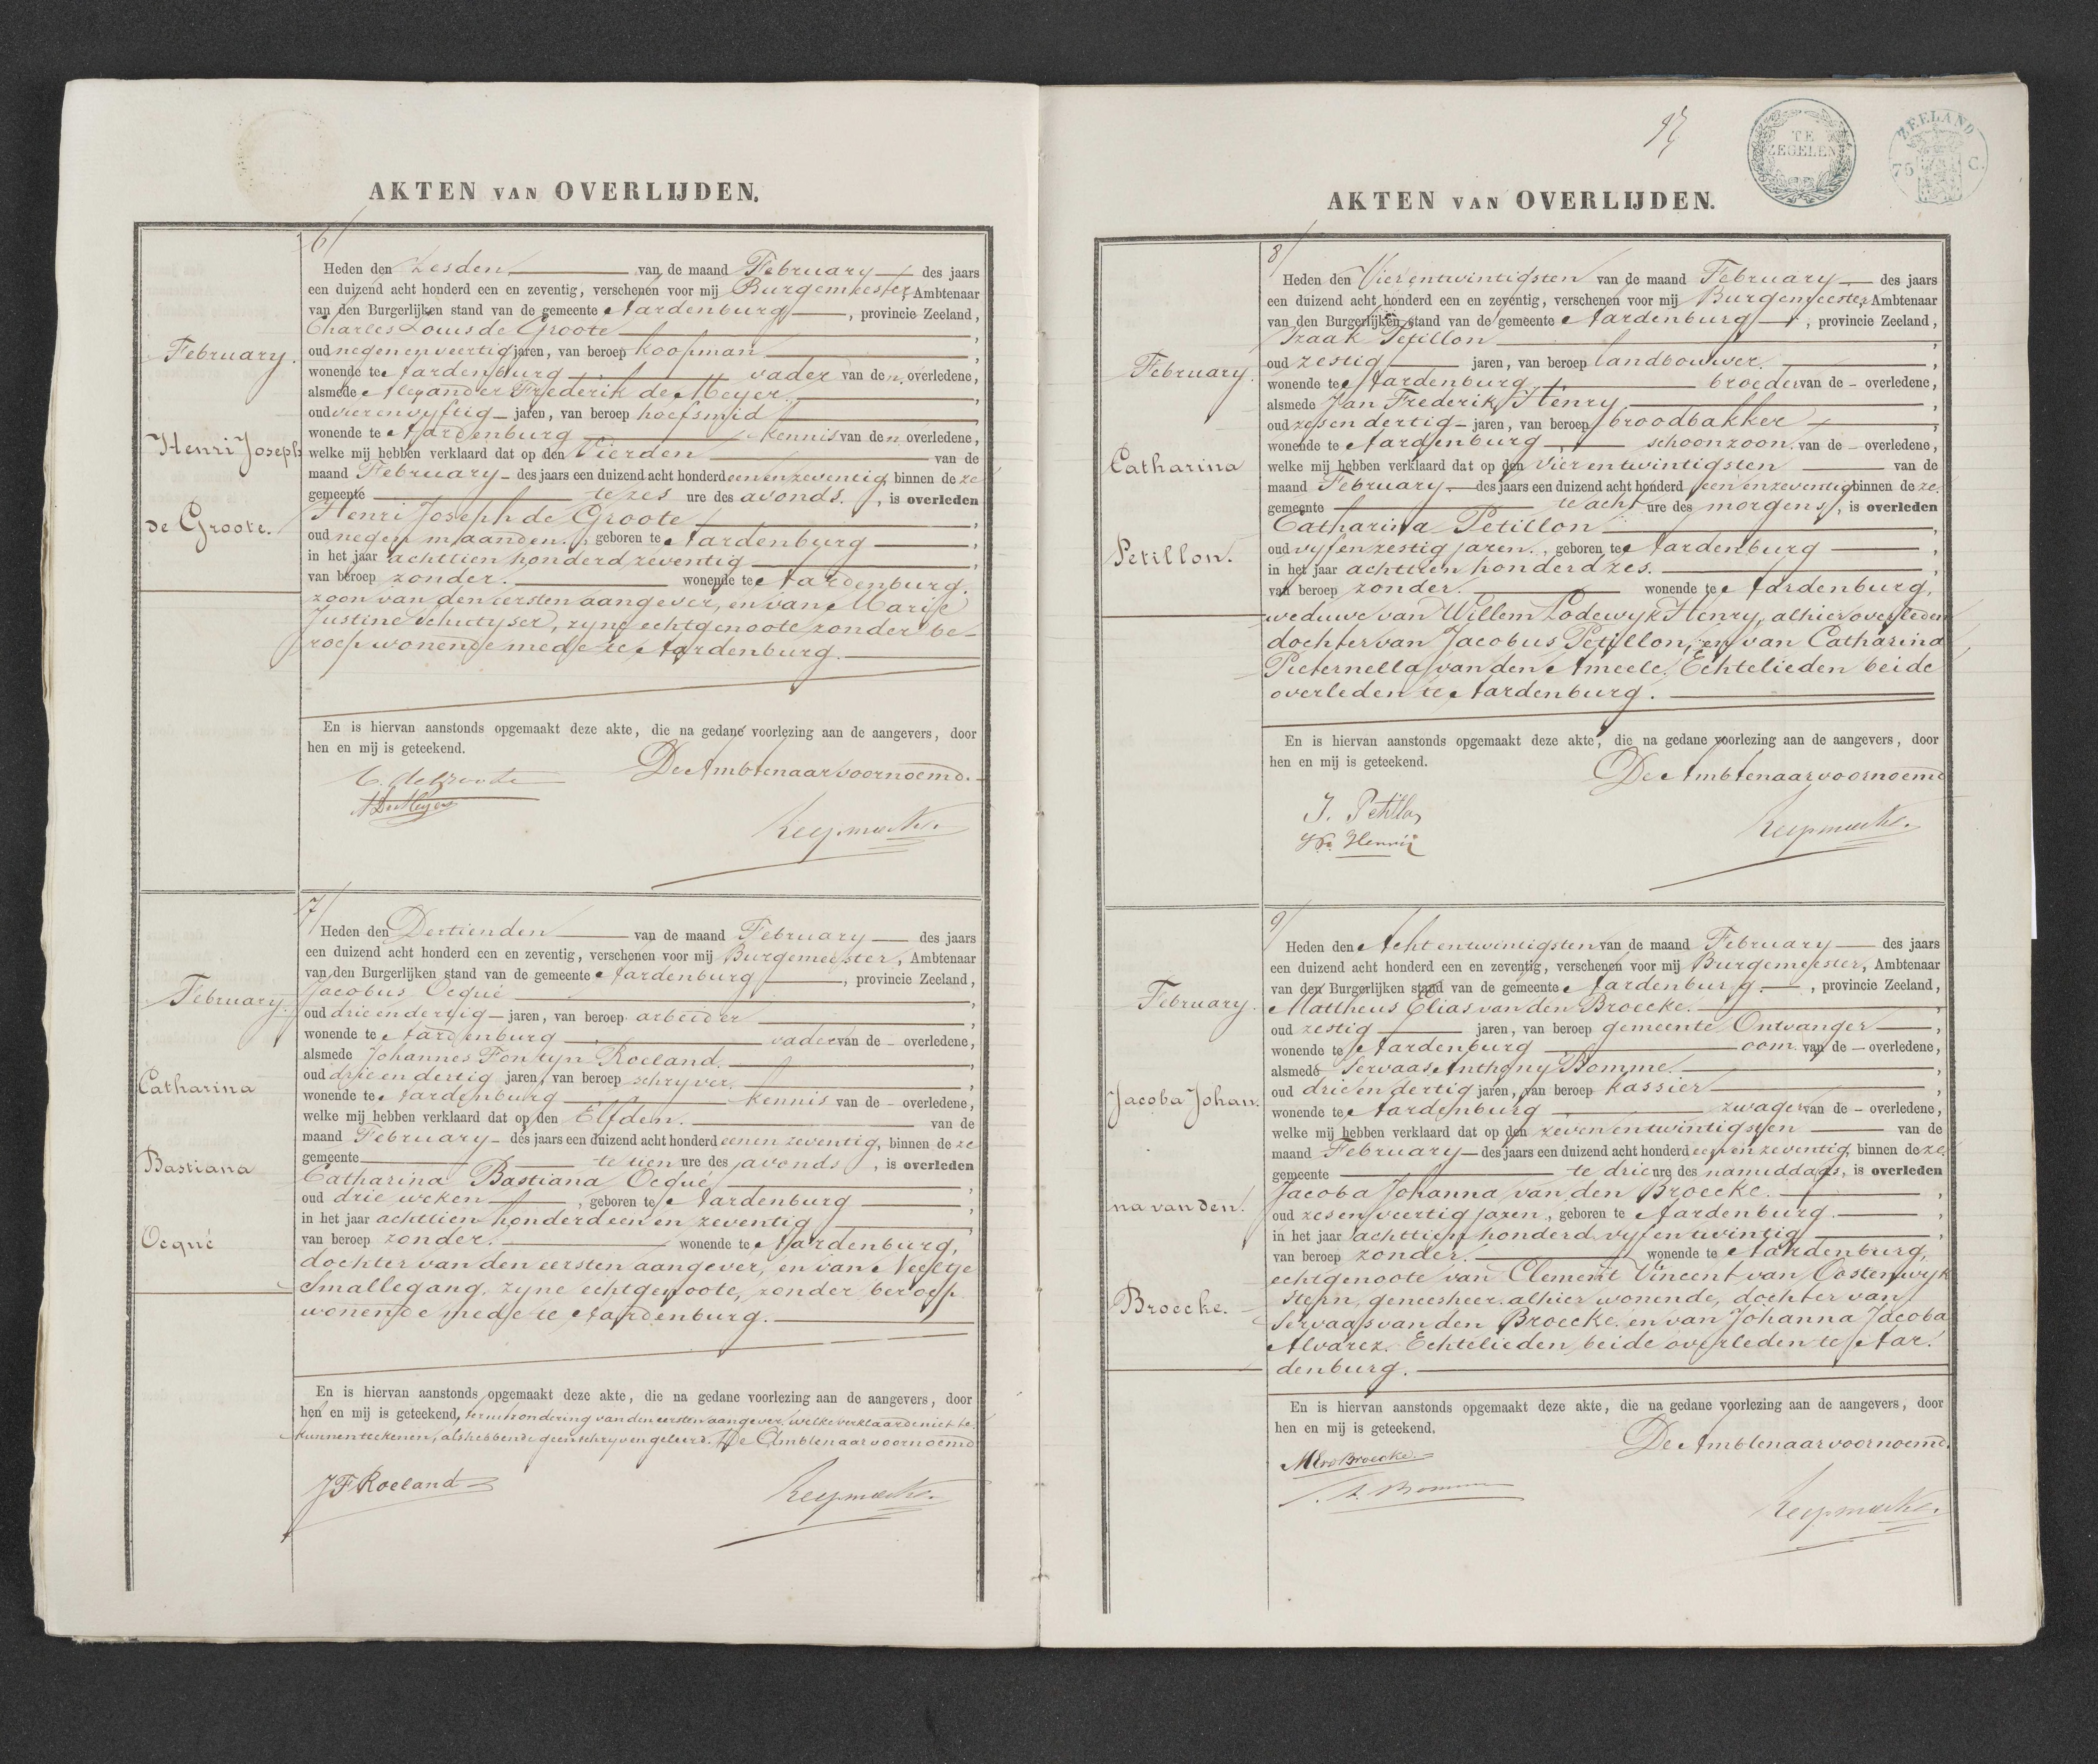 AKTEN VAN OVERLIJDEN.
6
February.
Henri Joseph
de Groote.
Heden den Zesden van de maand February des jaars
een duizend acht honderd een en zeventig, verschenen voor mij Burgemeester, Ambtenaar
van den Burgerlijken stand van de gemeente Aardenburg, provincie Zeeland,
Charles Louis de Groote,
oud negen en veertig jaren, van beroep koopman,
wonende te Aardenburg, vader van den overledene,
alsmede Alexander Frederik de Meyer,
oud vier en vyftig jaren, van beroep hoefsmid,
wonende te Aardenburg kennis van den overledene,
welke mij hebben verklaard dat op den Vierden van de
maand February des jaars een duizend acht honderd een en zeventig, binnen de ze
gemeente te zes ure des avonds, is overleden
Henri Joseph de Groote,
oud negen maanden, geboren te Aardenburg,
in het jaar achttien honderd zeventig,
van beroep zonder. wonende te Aardenburg.
zoon van den eersten aangever, en van Marie
Justine Schutyser, zyne echtgenoote zonder be-
roep wonende mede te Aardenburg.
En is hiervan aanstonds opgemaakt deze akte, die na gedane voorlezing aan de aangevers, door
hen en mij is geteekend. De Ambtenaar voornoemd.
C. de Groote
A De Meyer
7
February.
Catharina
Bastiana
Ocqué
Heden den Dertienden van de maand February des jaars
een duizend acht honderd een en zeventig, verschenen voor mij Burgemeester, Ambtenaar
van den Burgerlijken stand van de gemeente Aardenburg, provincie Zeeland,
Jacobus Ocqué,
oud drie en dertig jaren, van beroep arbeider,
wonende te Aardenburg, vader van de overledene,
alsmede Johannes Fontyn Roeland,
oud drie en dertig jaren, van beroep schryver,
wonende te Aardenburg kennis van de overledene,
welke mij hebben verklaard dat op den Elfden. van de
maand February des jaars een duizend acht honderd een en zeventig, binnen de ze
gemeente te tien ure des avonds, is overleden
Catharina Bastiana Ocqué,
oud drie weken, geboren te Aardenburg,
in het jaar achttien honderd een en zeventig,
van beroep zonder. wonende te Aardenburg,
dochter van den eersten aangever, en van Neeltje
Smallegang, zyne echtgenoote, zonder beroep
wonende mede te Aardenburg.
En is hiervan aanstonds opgemaakt deze akte, die na gedane voorlezing aan de aangevers, door
hen en mij is geteekend, ter uitzondering van den eersten aangever, welke verklaarde niet te
kunnen teekenen, als hebbende geen schryven geleerd. De Ambtenaar voornoemd
JF Roeland
TE ZEGELEN
ZEELAND
75 C.
AKTEN VAN OVERLIJDEN.
8
February.
Catharina
Petillon.
Heden den Vier en twintigsten van de maand February des jaars
een duizend acht honderd een en zeventig, verschenen voor mij Burgemeester, Ambtenaar
van den Burgerlijken stand van de gemeente Aardenburg, provincie Zeeland,
Izaak Petillon,
oud zestig jaren, van beroep landbouwer,
wonende te Aardenburg, broeder van de overledene,
alsmede Jan Frederik Henry,
oud zes en dertig jaren, van beroep broodbakker,
wonende te Aardenburg, schoonzoon. van de overledene,
welke mij hebben verklaard dat op den vier en twintigsten van de
maand February. des jaars een duizend acht honderd een en zeventig binnen de ze.
gemeente te acht ure des morgens, is overleden
Catharina Petillon,
oud vyf en zestig jaren., geboren te Aardenburg,
in het jaar achttien honderd zes.,
van beroep zonder. wonende te Aardenburg,
weduwe van Willem Lodewyk Henry, alhier overleden
dochter van Jacobus Petillon, en van Catharina
Pieternella van den Ameele, Echtelieden beide
overleden te Aardenburg.
En is hiervan aanstonds opgemaakt deze akte, die na gedane voorlezing aan de aangevers, door
hen en mij is geteekend. De Ambtenaar voornoemd
I. Petillon
9
February.
Jacoba Johan.
na van den.
Broecke.
Heden den Acht en twintigsten van de maand February des jaars
een duizend acht honderd een en zeventig, verschenen voor mij Burgemeester, Ambtenaar
van den Burgerlijken stand van de gemeente Aardenburg., provincie Zeeland,
Mattheus Elias van den Broecke.,
oud zestig jaren, van beroep gemeente Ontvanger,
wonende te Aardenburg oom. van de overledene,
alsmede Servaas Anthony Bomme,
oud drie en dertig jaren, van beroep kassier,
wonende te Aardenburg, zwager van de overledene,
welke mij hebben verklaard dat op den zeven en twintigsten van de
maand February des jaars een duizend acht honderd een en zeventig, binnen de ze.
gemeente te drie ure des namiddags, is overleden
Jacoba Johanna van den Broecke.,
oud zes en veertig jaren., geboren te Aardenburg.,
in het jaar achttien honderd vyf en twintig,
van beroep zonder. wonende te Aardenburg,
echtgenoote van Clement Vincent van Oostenwyk
Stern, geneesheer. alhier wonende, dochter van
Servaas van den Broecke. en van Johanna Jacoba
Alvarez. Echtelieden, beide overleden te Aar.
denburg.
En is hiervan aanstonds opgemaakt deze akte, die na gedane voorlezing aan de aangevers, door
hen en mij is geteekend. De Ambtenaar voornoemd.
MEvdBroecke.
S.A. Bomme